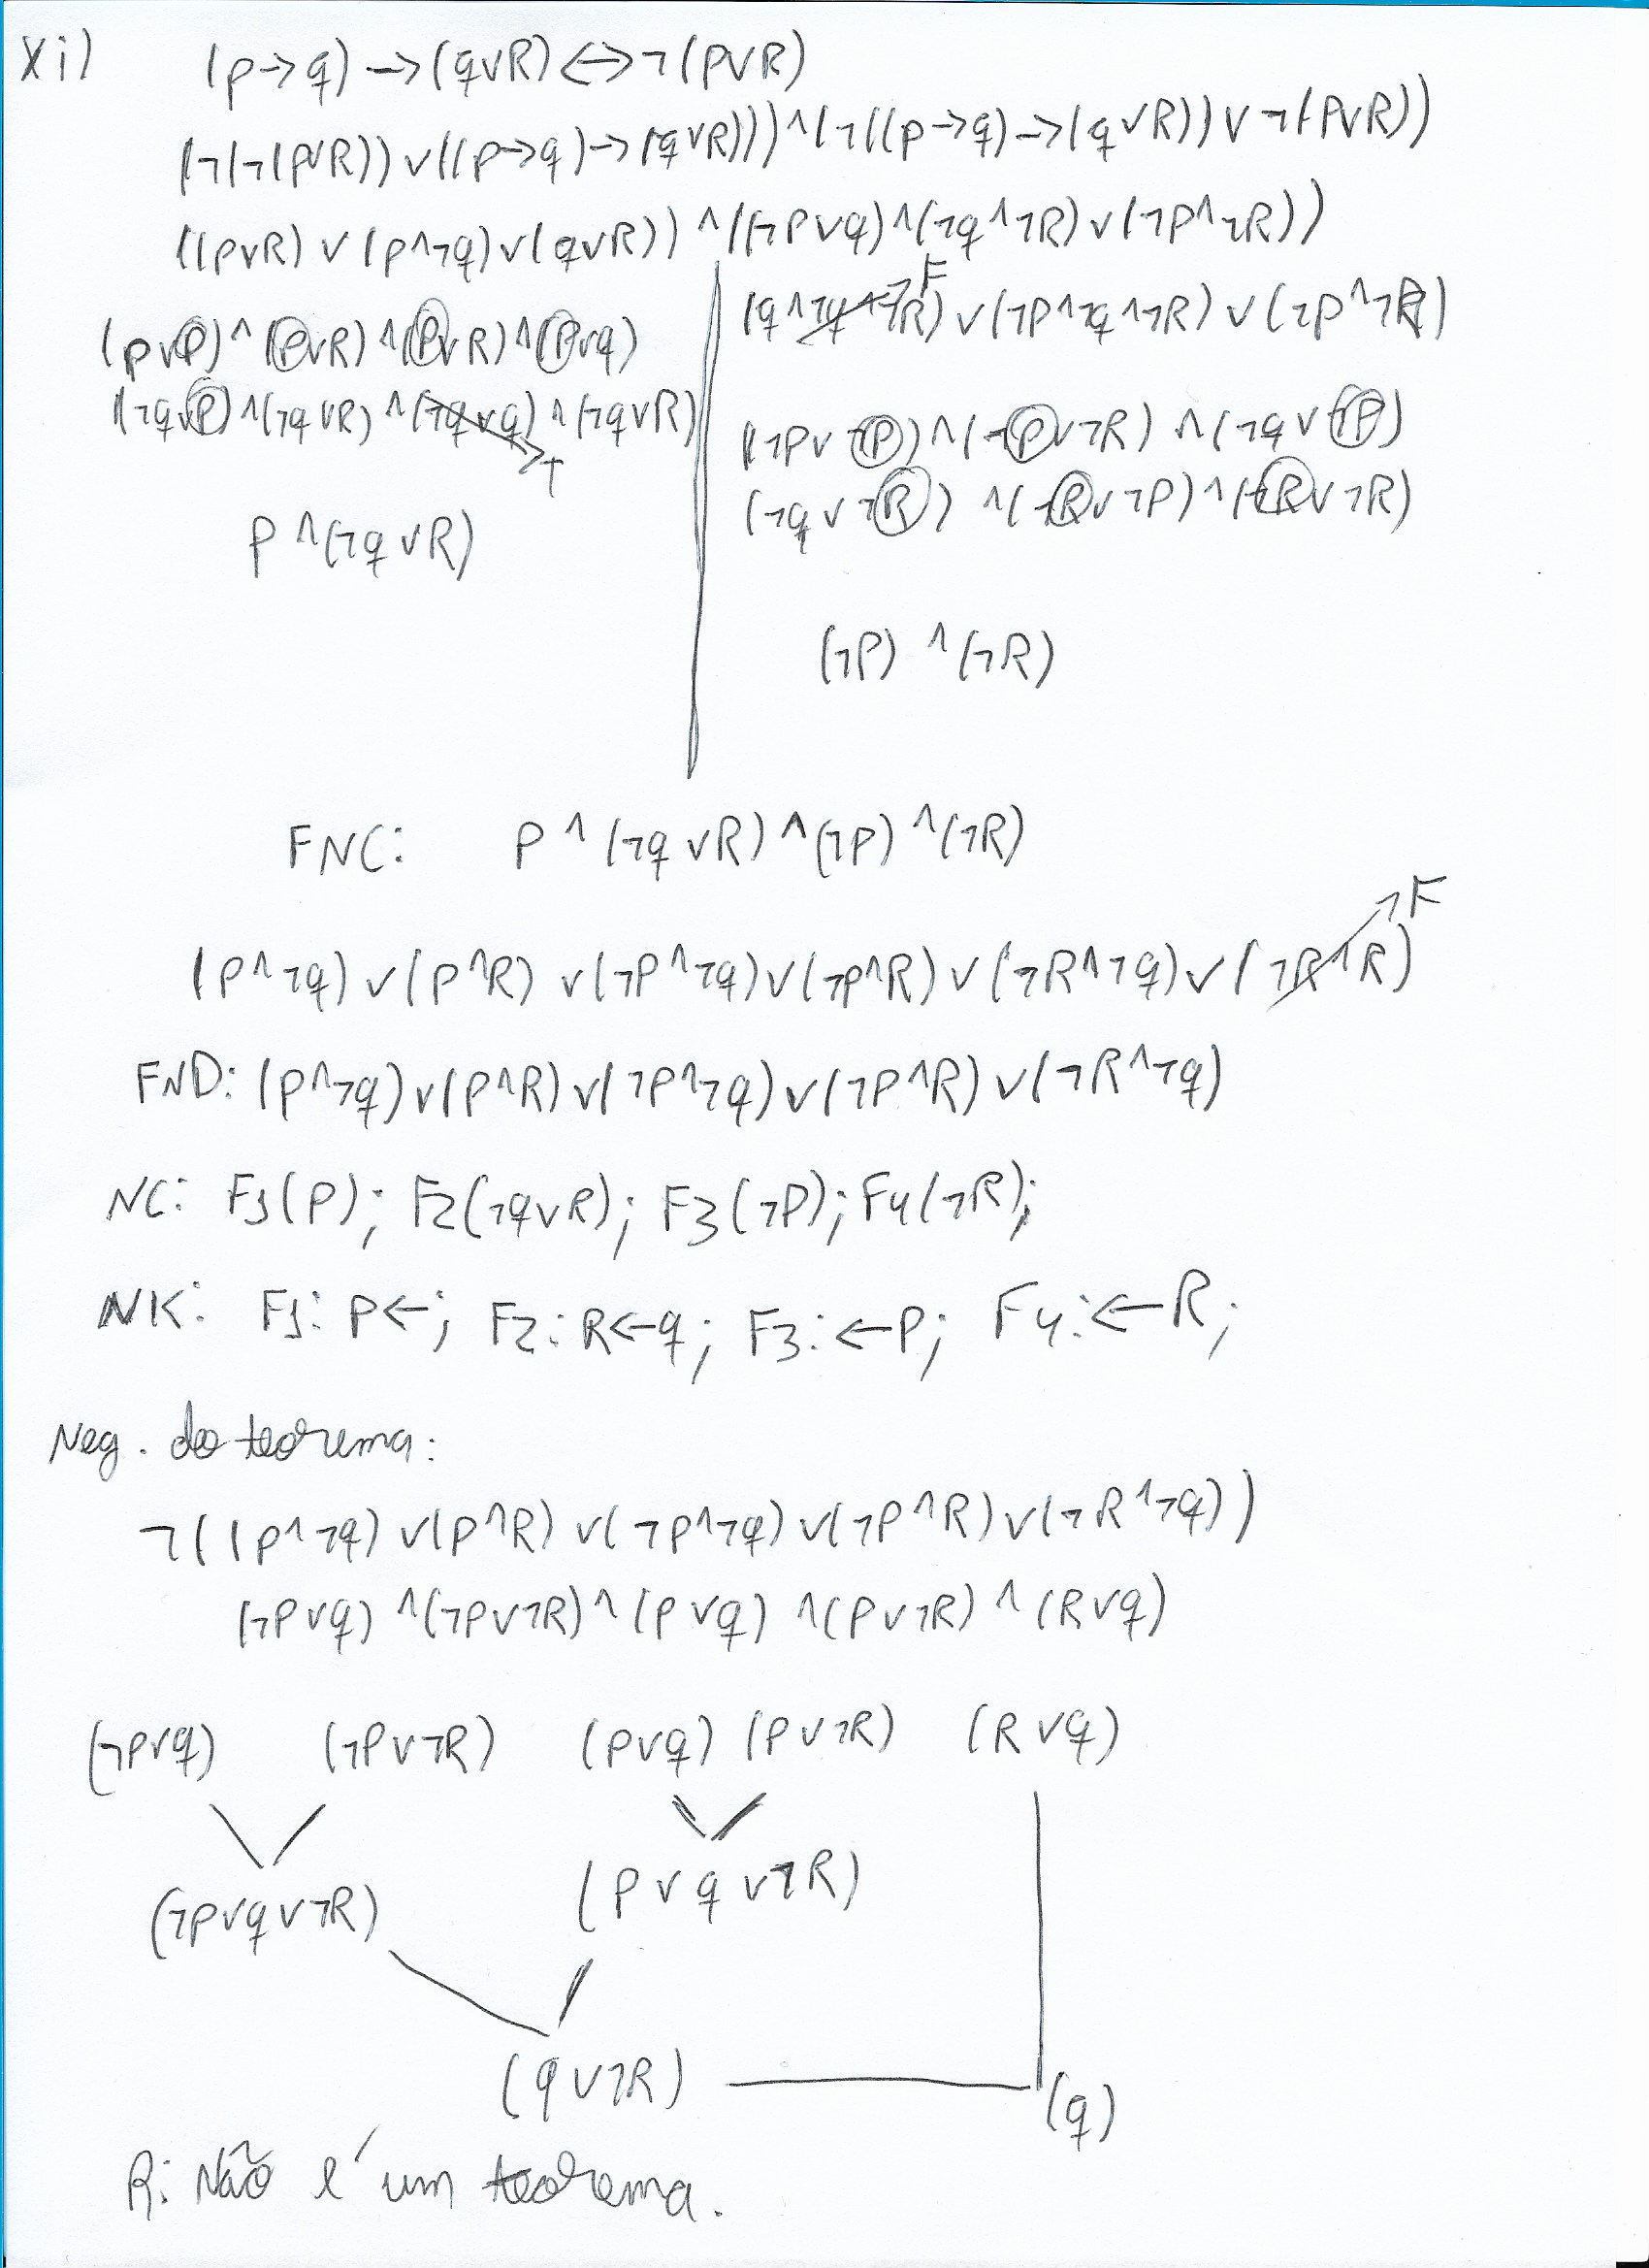 xi) (p→q)→(q∨R)↔¬(P∨R)
(¬(¬(P∨R))∨((p→q)→(q∨R)))∧(¬((p→q)→(q∨R))∨¬(P∨R))
((p∨R)∨(p∧¬q)∨(q∨R))∧((¬P∨q)∧(¬q∧¬R)∨(¬P∧¬R))
(p∨P)∧(P∨R)∧(P∨R)∧(P∨q)
(¬q∨P)∧(¬q∨R)∧(¬q∨q)∧(¬q∨R)
→T
P∧(¬q∨R)
→F
(q∧¬q∧¬R)∨(¬P∧¬q∧¬R)∨(¬P∧¬R)
(¬P∨¬P)∧(¬P∨¬R)∧(¬q∨¬P)
(¬q∨¬R)∧(¬R∨¬P)∧(¬R∨¬R)
(¬P)∧(¬R)
FNC: P∧(¬q∨R)∧(¬P)∧(¬R)
→F
(P∧¬q)∨(P∧R)∨(¬P∧¬q)∨(¬P∧R)∨(¬R∧¬q)∨(¬R∧R)
FND: (P∧¬q)∨(P∧R)∨(¬P∧¬q)∨(¬P∧R)∨(¬R∧¬q)
NC: F1(P); F2(¬q∨R); F3(¬P); F4(¬R);
NK: F1: P←; F2: R←q; F3: ←P; F4: ←R;
Neg. do teorema:
¬((P∧¬q)∨(P∧R)∨(¬P∧¬q)∨(¬P∧R)∨(¬R∧¬q))
(¬P∨q)∧(¬P∨¬R)∧(P∨q)∧(P∨¬R)∧(R∨q)
(¬P∨q) (¬P∨¬R) (P∨q) (P∨¬R) (R∨q)
(¬P∨q∨¬R) (P∨q∨¬R)
(q∨¬R) (q)
R: Não é um teorema.